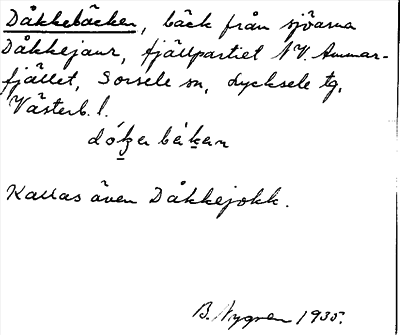 Dåkkebäcken, bäck från sjöarna
Dåkkejaur, fjällpartiet NV. Ammar-
fjället, Sorsele sn, Lycksele tg,
Västerb. l.
dóḵa béḵan
Kallas även Dåkkejokk.
B. Nygren 1935.